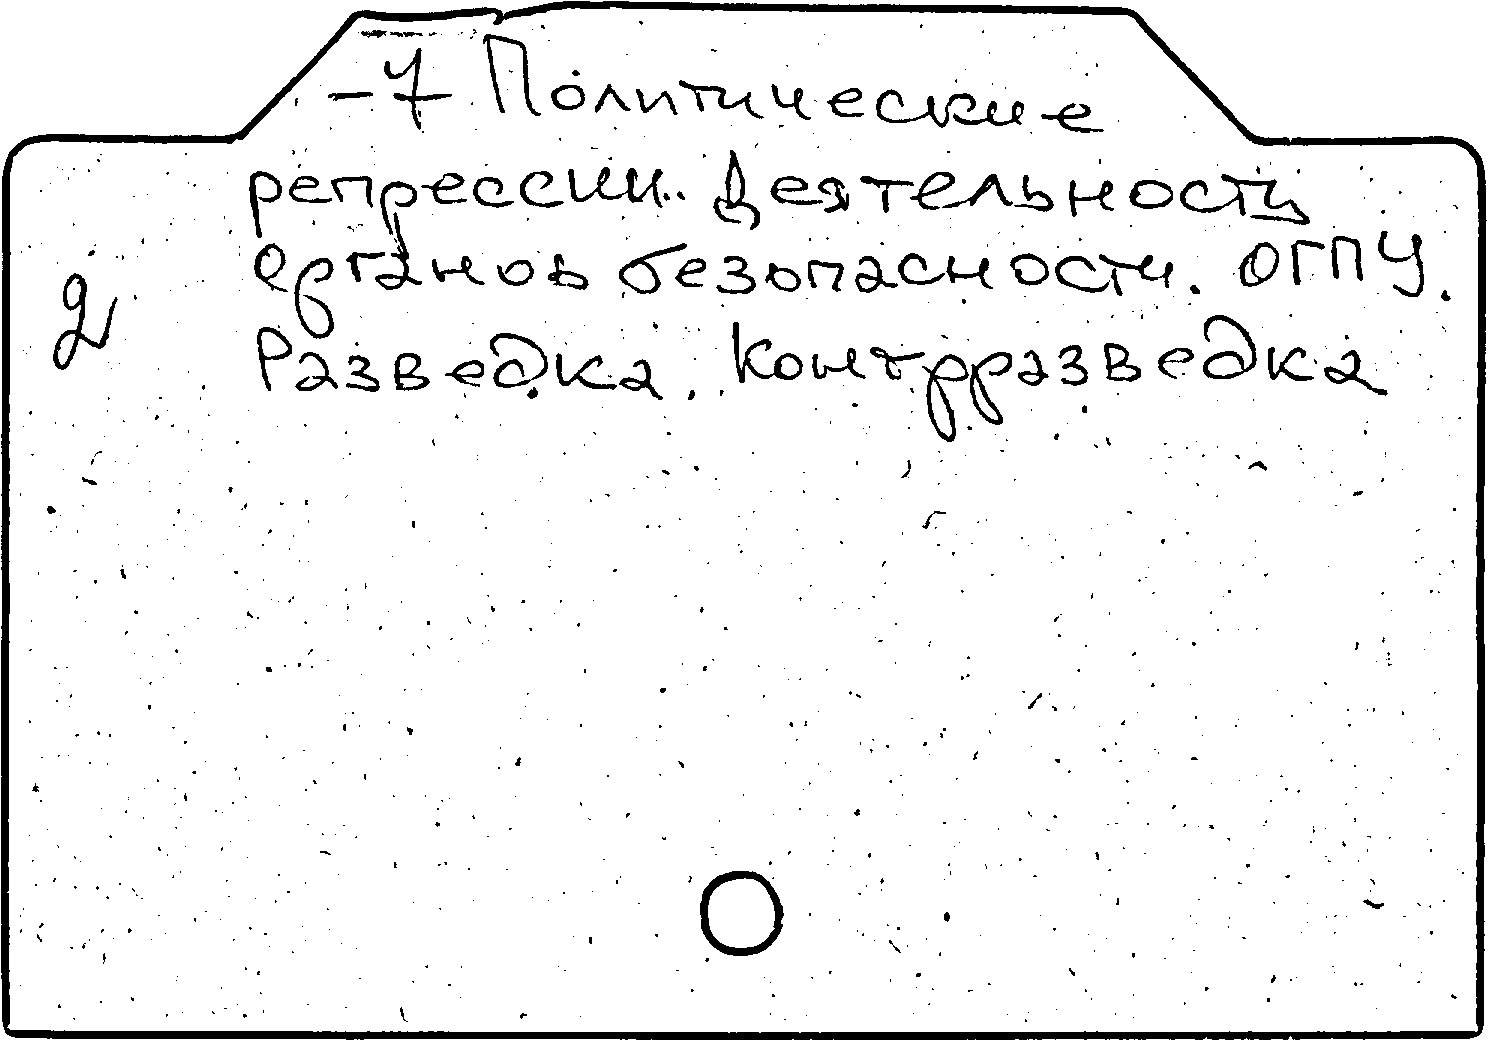 -7 Политические
репрессии. Деятельность
органов безопасности. ОГПУ.
2
Разведка. Контрразведка